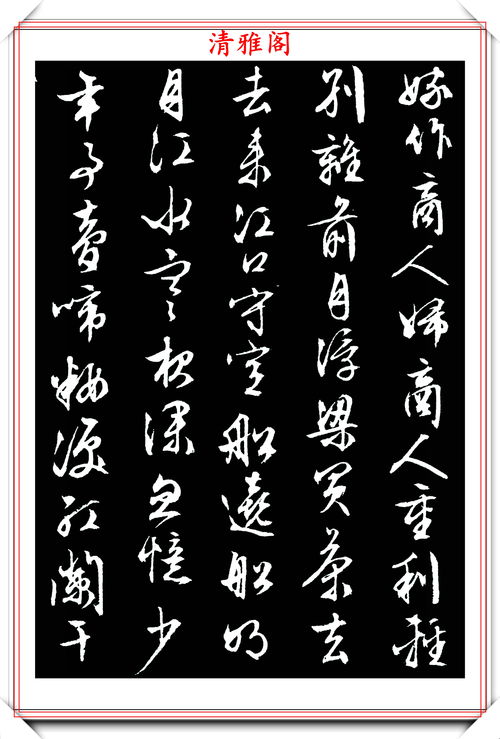 清雅阁
嫁作商人婦商人重利輕
別離前月浮梁買茶去
去来江口守空船遶船明
月江水寒夜深忽憶少
年事夢啼粧淚紅闌干